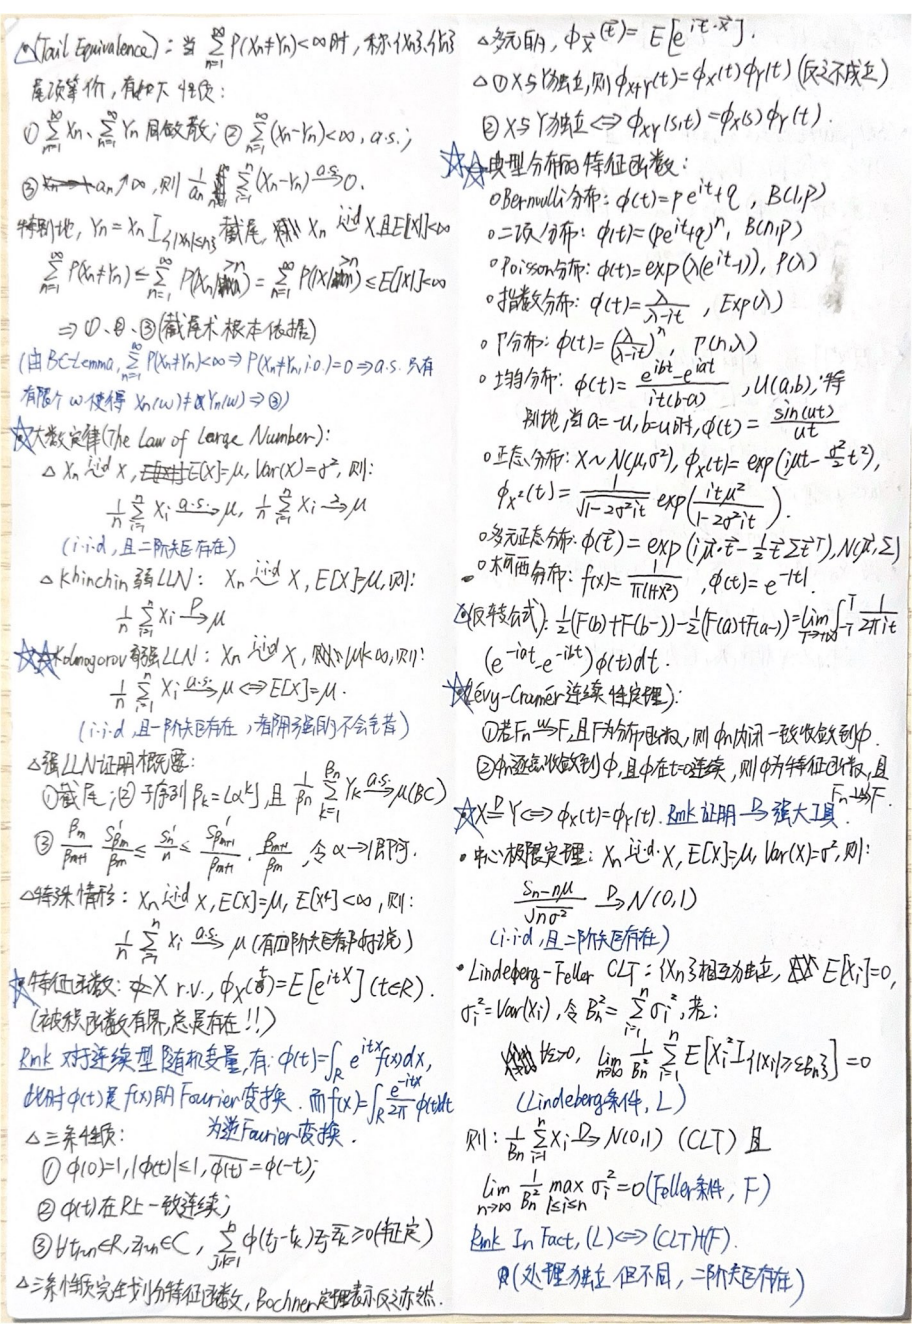 △(Tail Equivalence): 当 $\sum_{n=1}^{\infty} P(X_n \neq Y_n) < \infty$ 时, 称{Xn},{Yn}
尾项等价, 有如下性质:
① $\sum_{n=1}^{\infty} X_n$、$\sum_{n=1}^{\infty} Y_n$ 同敛散; ② $\sum_{n=1}^{\infty} (X_n - Y_n) < \infty$, a.s.;
③ $a_n \uparrow \infty$, 则 $\frac{1}{a_n} \sum (X_n - Y_n) \xrightarrow{a.s.} 0$.
特别地, $Y_n = X_n I_{\{|X_n| \leq n\}}$ 截尾, $X_n \overset{iid}{\sim} X$ 且 $E|X| < \infty$
$\sum_{n=1}^{\infty} P(X_n \neq Y_n) \leq \sum_{n=1}^{\infty} P(|X_n| > n) = \sum_{n=1}^{\infty} P(|X| > n) \leq E[|X|] < \infty$
⇒ ①、②、③ (截尾术根本依据)
(由 BC-Lemma, $\sum_{n=1}^{\infty} P(X_n \neq Y_n) < \infty \Rightarrow P(X_n \neq Y_n, i.o.) = 0 \Rightarrow$ a.s. 只有
有限个 ω 使得 $X_n(ω) \neq Y_n(ω)$ ⇒ ③)
☆大数定律(The Law of Large Number):
△ $X_n \overset{iid}{\sim} X$, $E[X]=μ$, $Var(X)=σ^2$, 则:
$\frac{1}{n} \sum_{i=1}^{n} X_i \xrightarrow{a.s.} μ$, $\frac{1}{n} \sum_{i=1}^{n} X_i \xrightarrow{2} μ$
(i.i.d, 且二阶矩存在)
△ Khinchin 弱LLN: $X_n \overset{iid}{\sim} X$, $E[X]=μ$, 则:
$\frac{1}{n} \sum_{i=1}^{n} X_i \xrightarrow{P} μ$
☆☆Kolmogorov 强LLN: $X_n \overset{iid}{\sim} X$, $|μ| < \infty$, 则:
$\frac{1}{n} \sum_{i=1}^{n} X_i \xrightarrow{a.s.} μ \Leftrightarrow E[X]=μ$.
(i.i.d, 且一阶矩存在, 有阴强的不会主着)
△强LLN证明概要:
①截尾; ②子序列 $β_k = \lfloor α^k \rfloor$, 且 $\frac{1}{β_n} \sum_{k=1}^{β_n} Y_k \xrightarrow{a.s.} μ$ (BC)
③ $\frac{β_m}{β_{m+1}} \frac{S'_{β_m}}{β_m} \leq \frac{S'_n}{n} \leq \frac{S'_{β_{m+1}}}{β_{m+1}} \cdot \frac{β_{m+1}}{β_m}$, 令 α→1即可.
△特殊情形: $X_n \overset{iid}{\sim} X$, $E[X]=μ$, $E[X^4] < \infty$, 则:
$\frac{1}{n} \sum_{i=1}^{n} X_i \xrightarrow{a.s.} μ$ (有四阶矩都好说)
☆特征函数: X r.v., $φ_X(t) = E[e^{itX}]$ (t∈R).
(被积函数有界, 总是存在!!)
Rmk 对于连续型随机变量, 有: $φ(t) = \int_R e^{itx} f(x) dx$,
此时 φ(t) 是 f(x) 的 Fourier变换. 而 $f(x) = \int_R \frac{e^{-itx}}{2π} φ(t) dt$
为逆Fourier变换.
△三条性质:
① $φ(0)=1, |φ(t)| \leq 1, \overline{φ(t)} = φ(-t)$;
② φ(t) 在R上一致连续;
③ $∀ t_{1:n} ∈ R, z_{1:n} ∈ C$, $\sum_{j,k=1}^{n} φ(t_j - t_k) z_j \overline{z_k} \geq 0$ (非定)
△三条性质完全划分特征函数, Bochner定理表示反之亦然.
△多元的, $φ_{\vec{X}}(\vec{t}) = E[e^{i\vec{t} \cdot \vec{X}}]$.
△ ① X与Y独立, 则 $φ_{X+Y}(t) = φ_X(t) φ_Y(t)$ (反之不成立)
② X与Y独立 ⇔ $φ_{XY}(s,t) = φ_X(s) φ_Y(t)$.
☆☆典型分布的特征函数:
o Bernulli分布: $φ(t) = pe^{it}+q$, B(1,p)
o 二项分布: $φ(t) = (pe^{it}+q)^n$, B(n,p)
o Poisson分布: $φ(t) = exp(λ(e^{it}-1))$, P(λ)
o 指数分布: $φ(t) = \frac{λ}{λ-it}$, Exp(λ)
o Γ分布: $φ(t) = (\frac{λ}{λ-it})^n$, Γ(n,λ)
o 均匀分布: $φ(t) = \frac{e^{ibt}-e^{iat}}{it(b-a)}$, U(a,b), 特
别地, 当 a=-u, b=u 时, $φ(t) = \frac{sin(ut)}{ut}$
o 正态分布: X~N(μ,σ²), $φ_X(t) = exp(iμt - \frac{σ^2}{2}t^2)$,
$φ_{X^2}(t) = \frac{1}{\sqrt{1-2σ^2it}} exp(\frac{itμ^2}{1-2σ^2it})$.
o 多元正态分布: $φ(\vec{t}) = exp(i\vec{μ} \cdot \vec{t} - \frac{1}{2}\vec{t}Σ\vec{t}^T)$, N(\vec{μ},Σ)
o 柯西分布: $f(x) = \frac{1}{π(1+x^2)}$, $φ(t) = e^{-|t|}$
△(反转公式): $\frac{1}{2}(F(b)+F(b-)) - \frac{1}{2}(F(a)+F(a-)) = \lim_{T→∞} \int_{-T}^{T} \frac{1}{2πit}$
$(e^{-iat} - e^{-ibt}) φ(t) dt$.
☆(Lévy-Cramér 连续性定理):
①若 $F_n \xrightarrow{w} F$, 且F为分布函数, 则 φn内闭一致收敛到φ.
②φn逐点收敛到φ, 且φ在t=0连续, 则φ为特征函数, 且
$F_n \xrightarrow{w} F$.
☆ $X \overset{D}{=} Y ⇔ φ_X(t) = φ_Y(t)$. Rmk 证明 $\xrightarrow{D}$ 强大工具.
• 中心极限定理: $X_n \overset{iid}{\sim} X$, E[X]=μ, Var(X)=σ², 则:
$\frac{S_n - nμ}{\sqrt{nσ^2}} \xrightarrow{D} N(0,1)$
(i.i.d, 且二阶矩存在)
• Lindeberg-Feller CLT: {Xn}相互独立, $E[X_i]=0$,
$σ_i^2 = Var(X_i)$, 令 $B_n^2 = \sum_{i=1}^{n} σ_i^2$, 若:
∀ε>0, $\lim_{n→∞} \frac{1}{B_n^2} \sum_{i=1}^{n} E[X_i^2 I_{\{|X_i| \geq εB_n\}}] = 0$
(Lindeberg条件, L)
则: $\frac{1}{B_n} \sum_{i=1}^{n} X_i \xrightarrow{D} N(0,1)$ (CLT) 且
$\lim_{n→∞} \frac{1}{B_n^2} \max_{1≤i≤n} σ_i^2 = 0$ (Feller条件, F)
Rmk In Fact, (L) ⇔ (CLT)+(F).
(处理独立但不同, 二阶矩存在)